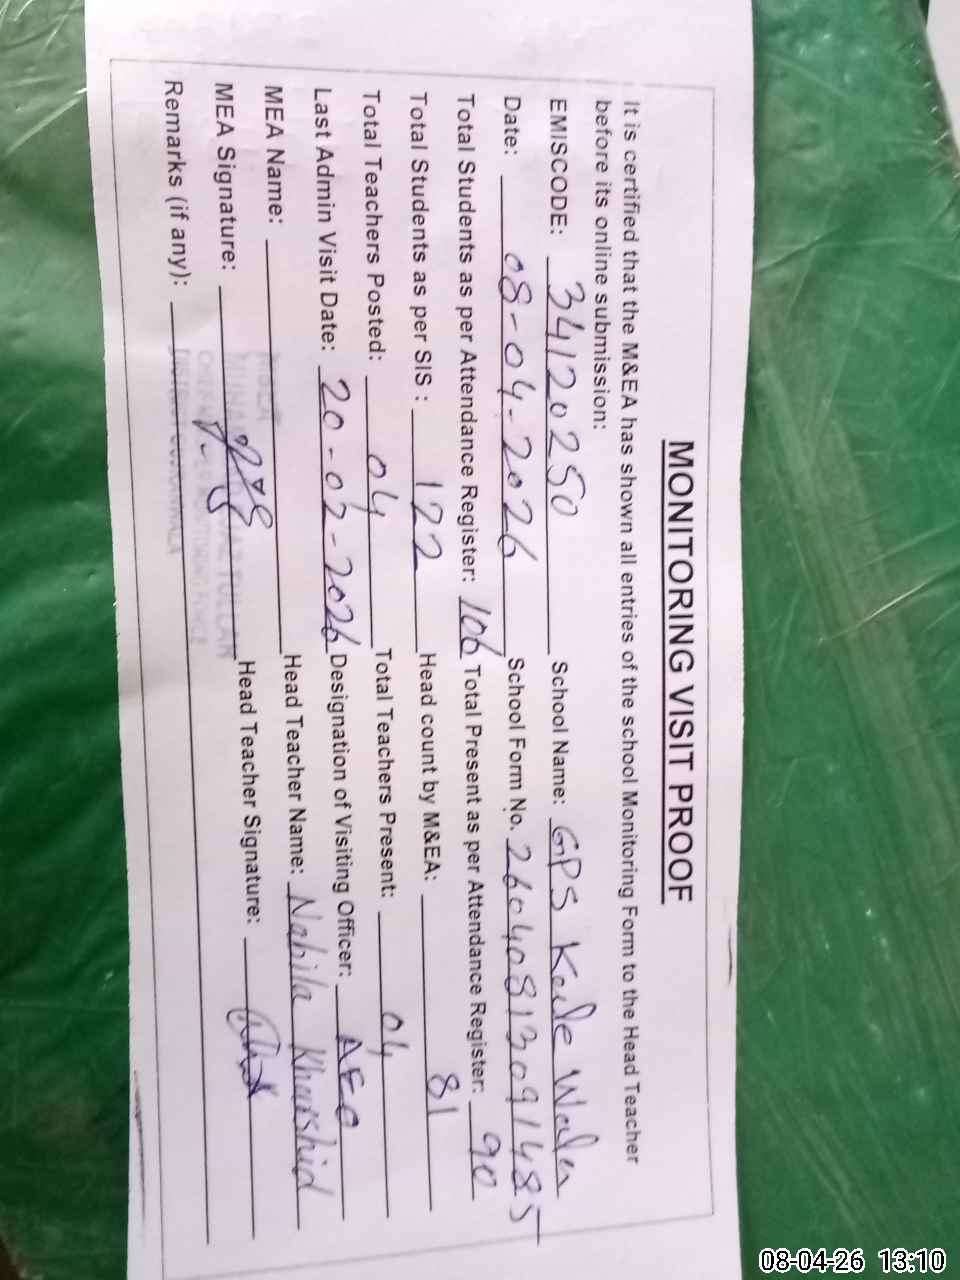 MONITORING VISIT PROOF
It is certified that the M&EA has shown all entries of the school Monitoring Form to the Head Teacher
before its online submission:
EMISCODE: 34120250 School Name: GPS Kale Wala
Date: 08-04-2026 School Form No. 26040813091485
Total Students as per Attendance Register: 106 Total Present as per Attendance Register: 90
Total Students as per SIS : 122 Head count by M&EA: 81
Total Teachers Posted: 04 Total Teachers Present: 04
Last Admin Visit Date: 20-02-2026 Designation of Visiting Officer: AEO
MEA Name: Head Teacher Name: Nabila Khurshid
MEA Signature: Head Teacher Signature:
Remarks (if any):
08-04-26 13:10